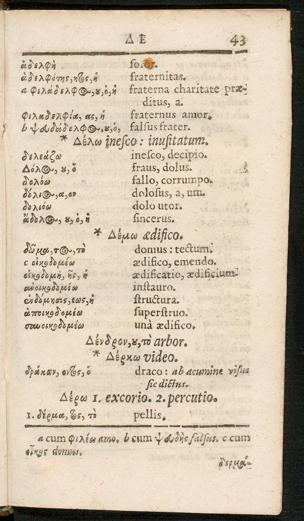 ΔΕ 43
ἀδελφὴ soror.
ἀδελφότης, ητος, ἡ fraternitas.
a φιλάδελφος, ου, ὁ, ἡ fraterna charitate præ-
ditus, a.
φιλαδελφία, ας, ἡ fraternus amor.
b ψευδάδελφος, ου, ὁ, falsus frater.
* Δέλω inesco: inusitatum.
δελεάζω inesco, decipio.
Δόλος, ου, ὁ fraus, dolus.
δολόω fallo, corrumpo.
δόλιος, α, ον dolosus, a, um.
δολιόω dolo utor.
ἄδολος, ου, ὁ, ἡ sincerus.
* Δέμω ædifico.
δῶμα, τος, τὸ domus: tectum.
c οἰκοδομέω ædifico, emendo.
οἰκοδομὴ, ῆς, ἡ ædificatio, ædificium.
ἀνοικοδομέω instauro.
ἐνδόμησις, εως, ἡ structura.
ἐποικοδομέω superstruo.
συνοικοδομέω unà ædifico.
Δένδρον, ου, τὸ arbor.
* Δέρκω video.
δράκων, οντος, ὁ draco: ab acumine visus
sic dictus.
Δέρω 1. excorio. 2. percutio.
1. δέρμα, τος, τὸ pellis.
a cum φιλέω amo. b cum ψευδὴς falsus. c cum
οἶκος domus.
δερμά-